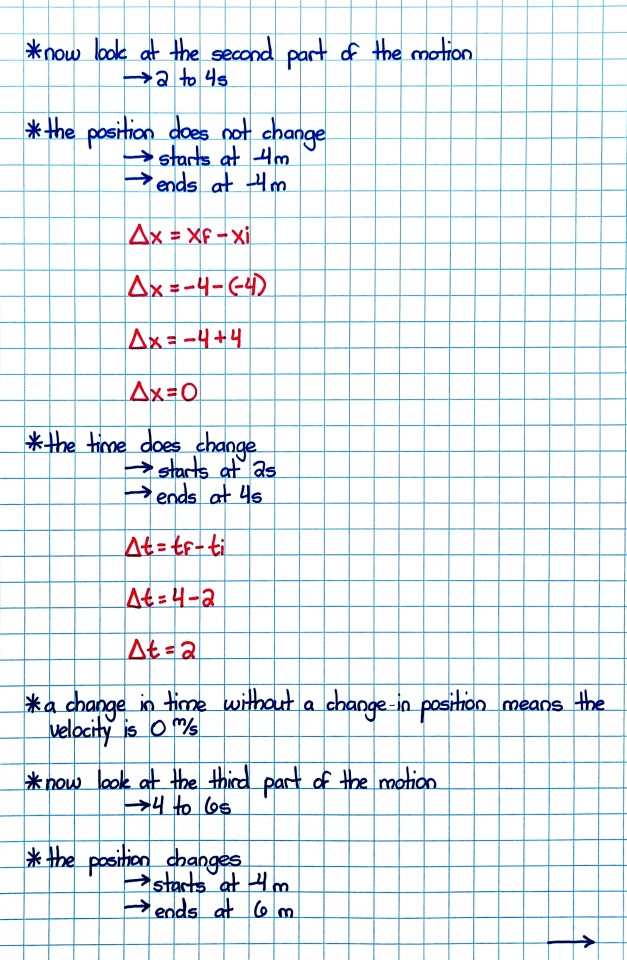 *now look at the second part of the motion
→2 to 4s
*the position does not change
→starts at -4m
→ends at -4m
Δx = xf - xi
Δx = -4-(-4)
Δx = -4+4
Δx=0
*the time does change
→starts at 2s
→ends at 4s
Δt = tf - ti
Δt = 4-2
Δt = 2
*a change in time without a change in position means the
velocity is 0 m/s
*now look at the third part of the motion
→4 to 6s
*the position changes
→starts at -4m
→ends at 6 m
→